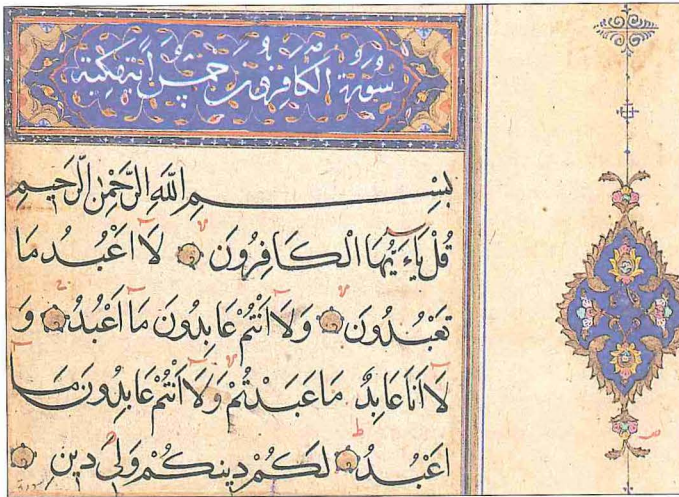 سُورَةُ الْكَافِرُونَ خَمْسُ اٰيَة مَكِّيَّة
بِسْمِ اللّٰهِ الرَّحْمٰنِ الرَّحِيمِ
قُلْ يَاءَيُّهَا الْكَافِرُونَ لَا اَعْبُدُ مَا
تَعْبُدُونَ وَلَا اَنْتُمْ عَابِدُونَ مَا اَعْبُدُ وَ
لَا اَنَا عَابِدٌ مَا عَبَدْتُمْ وَلَا اَنْتُمْ عَابِدُونَ مَا
اَعْبُدُ لَكُمْ دِينُكُمْ وَلِيَ دِينِ